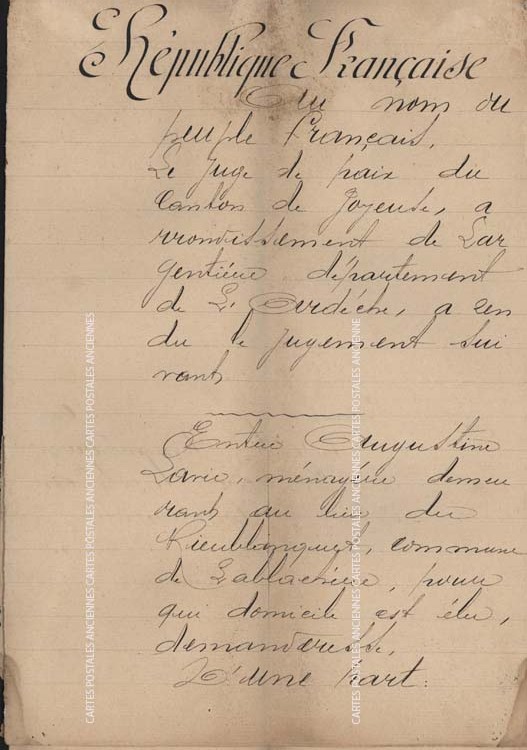 République Française
Au nom du
peuple français,
Le Juge de paix du
Canton de Joyeuse, a
rrondissement de Lar
gentière département
de L'Ardèche, a ren
du le jugement sui
vant,
Entre Augustine
ménagère demeu
rant au lieu de
commune
de Lablachère, pour
qui domicile est élu,
demanderesse,
D'une part.
CARTES POSTALES ANCIENNES CARTES POSTALES ANCIENNES CARTES POSTALES ANCIENNES
CARTES POSTALES ANCIENNES CARTES POSTALES ANCIENNES CARTES POSTALES ANCIENNES